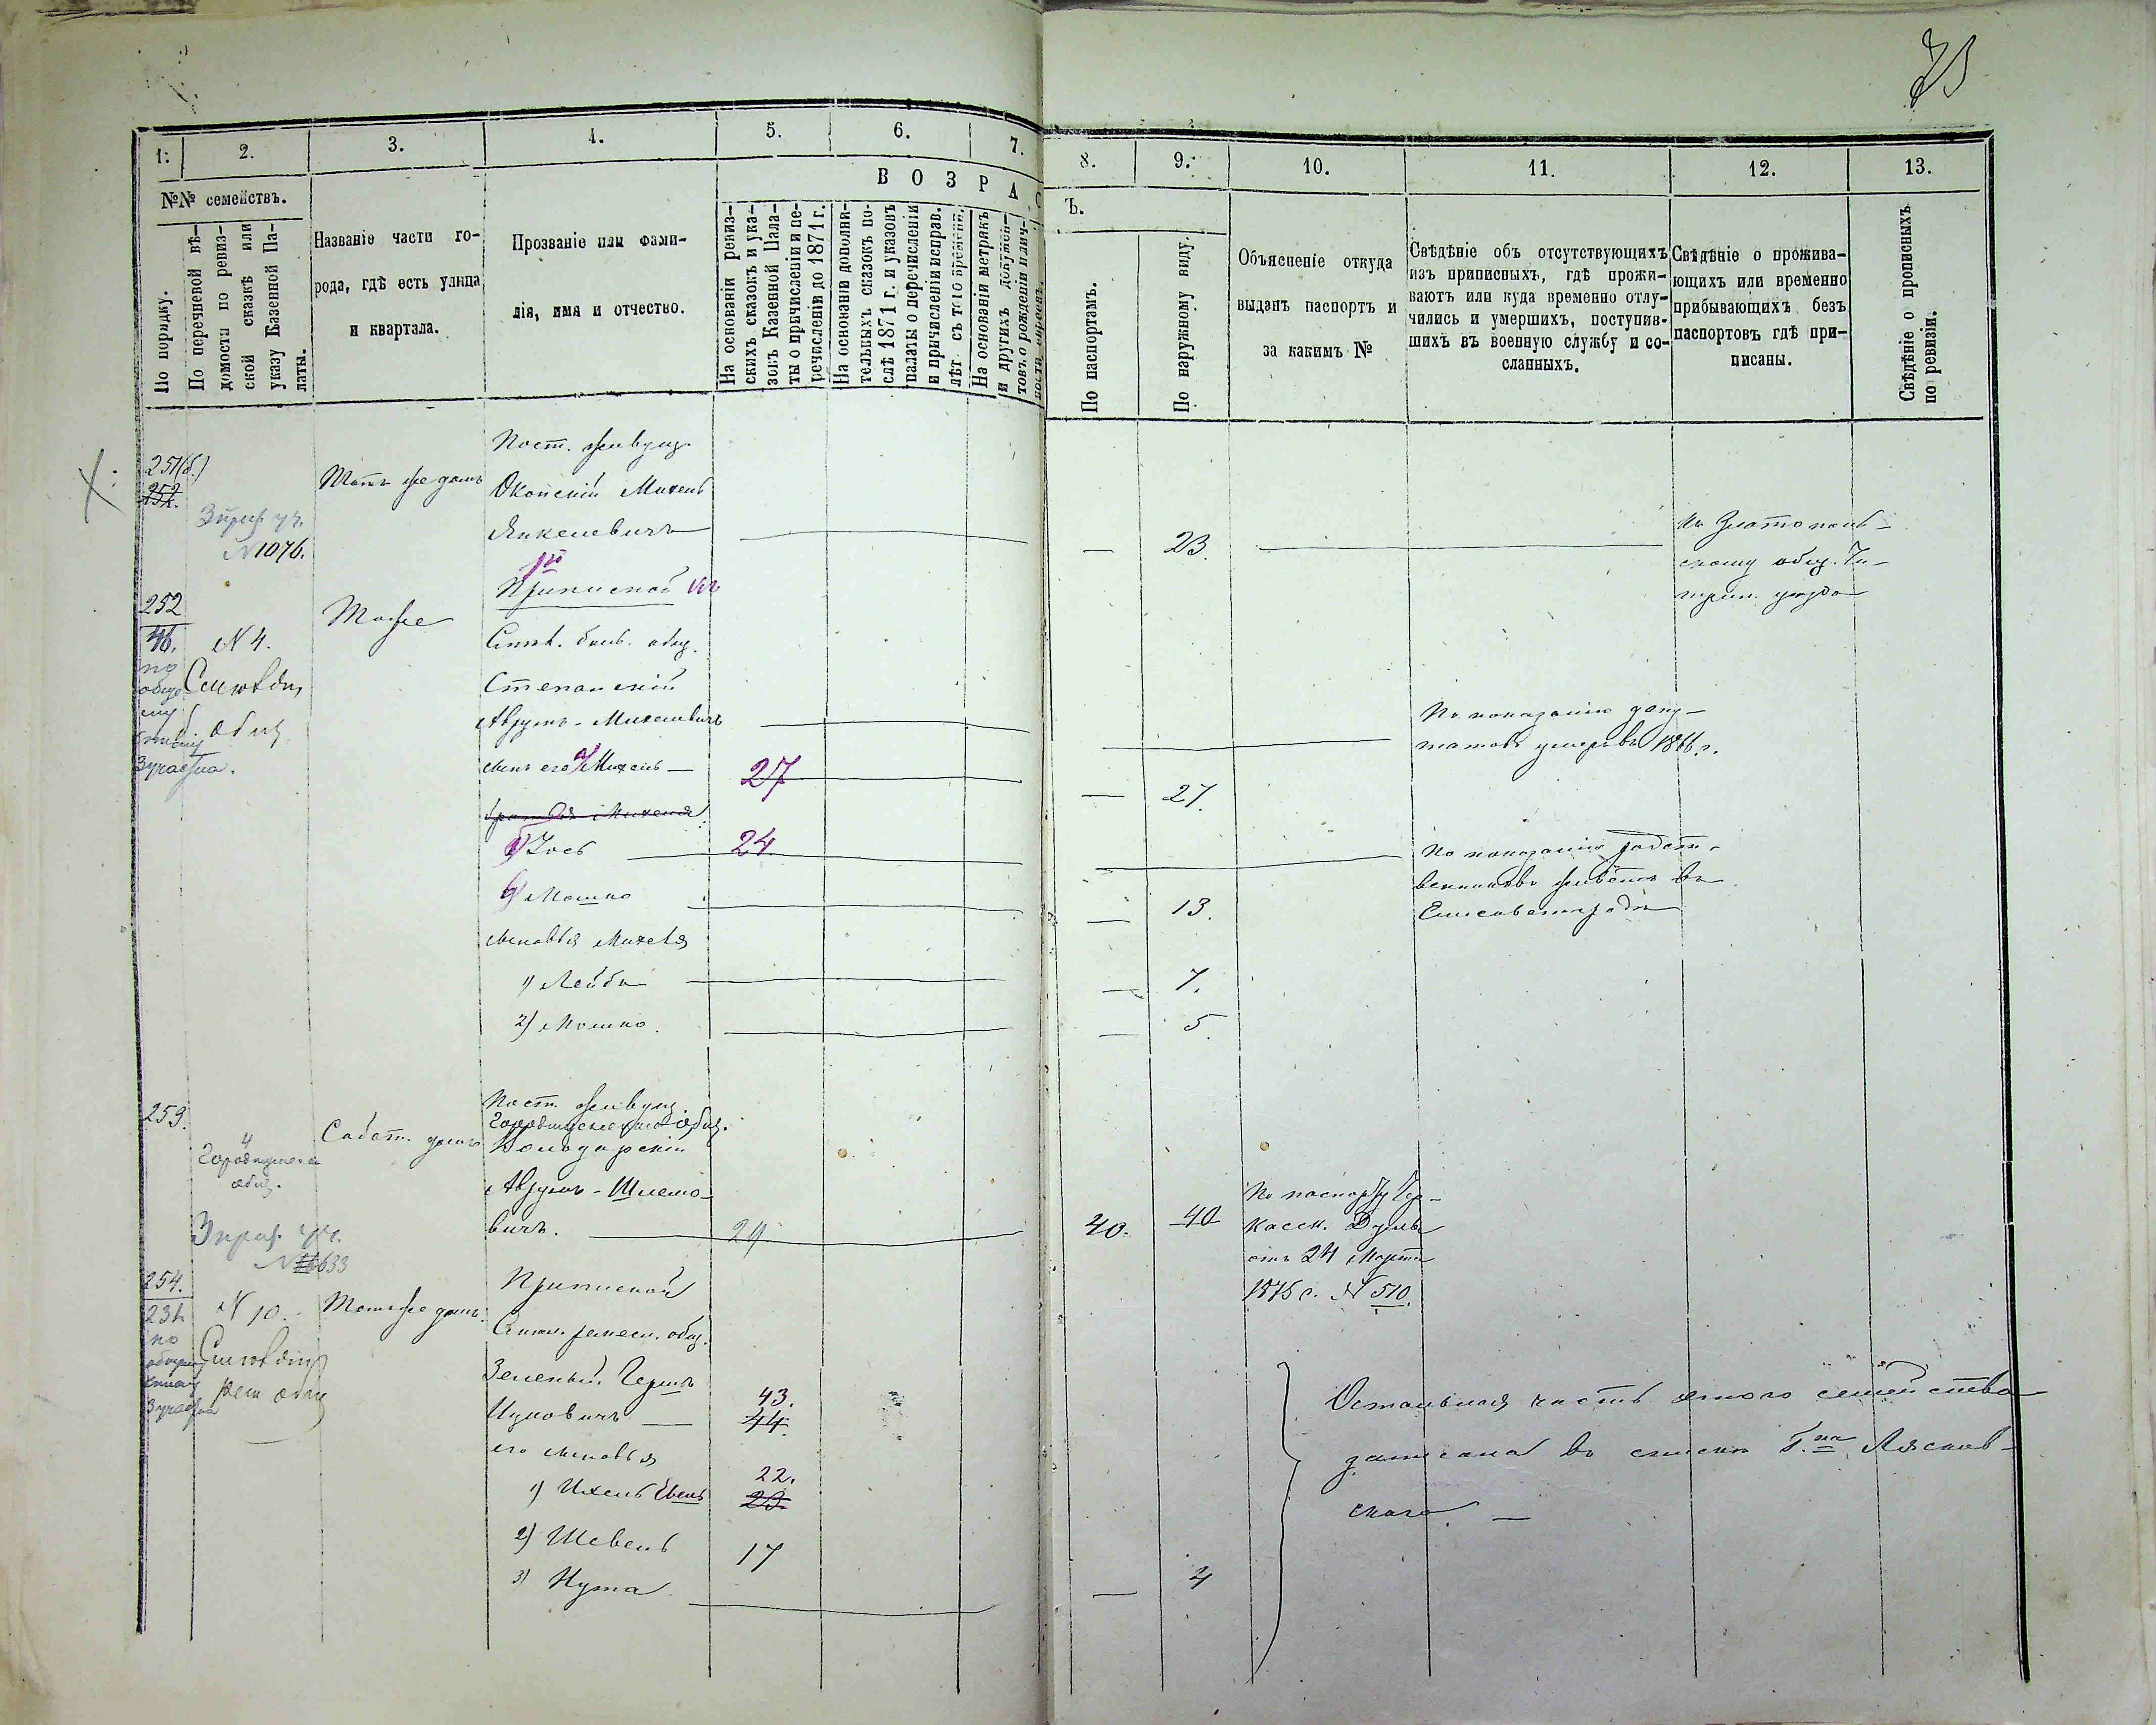 73
1.
2.
3.
4.
5.
6.
7.
8.
9.
10.
11.
12.
13.
№№ семействъ.
По порядку.
По перечневой вѣ-
домости по ревиз-
ской сказкѣ или
указу Казенной Па-
латы.
Названіе части го-
рода, гдѣ есть улица
и квартала.
Прозваніе или фами-
лія, имя и отчество.
ВОЗРАС
Ъ.
На основаніи ревиз-
скихъ сказокъ и ука-
зовъ Казенной Пала-
ты о причисленіи и пе-
речисленіи до 1871 г.
На основаніи дополни-
тельныхъ сказокъ по-
слѣ 1871 г. и указовъ
палаты о перечисленіи
и причисленіи исправ.
лѣт. съ того времени.
На основаніи метрикъ
и другихъ документ-
товъ о рожденіи и лич-
По паспортамъ.
По наружному виду.
Объясненіе откуда
выданъ паспортъ и
за какимъ №
Свѣдѣніе объ отсутствующихъ
изъ приписныхъ, гдѣ прожи-
ваютъ или куда временно отлу-
чились и умершихъ, поступив-
шихъ въ военную службу и со-
сланныхъ.
Свѣдѣніе о прожива-
ющихъ или временно
прибывающихъ безъ
паспортовъ гдѣ при-
писаны.
Свѣдѣніе о прописныхъ
по ревизіи.
251(б.)
252.
N 1076.
Тотъ же домъ
Пост. живущ.
Оконскій Михель
Янкелевичъ
—
23.
По Златополь-
скому общ. Чи-
грин. уѣзда
252
46.
по
общ
N 4.
Смѣл
общ
3 участка.
Тоже
Приписной
Смѣл. общ.
Степанскій
Аврумъ-Михелевичъ
По показанію депу-
татовъ умеръ въ 1866 г.
сынъ его а) Михель —
27
—
27.
братья Михеля
б) Іось
24
По показанію родст-
венниковъ живётъ въ
Елисаветградѣ
в) Мошко
—
13.
сыновья Михеля
1) Лейба
—
7.
2) Мошко.
—
5.
253.
4
Городищенск
общ.
Собст. домъ
Пост. живущ.
Городищенскаго общ.
Володарскій
Аврумъ-Шлемо-
вичъ.
29
40.
40
По паспорту Чер-
касск. Думы
отъ 24 Марта
1875 г. N 510.
633
254.
231
по
3 участка
N 10.
Смѣл
рем общ
Тотъ же домъ.
Приписной
Смѣл. ремесл. общ.
Зеленый Гершъ
Ицковичъ —
43.
44.
его сыновья
1) Ихель
22.
23.
2) Шевель
17
3) Нута
—
4
Остальная часть этого семейства
записана въ списки Г.на Лясков-
скаго. —